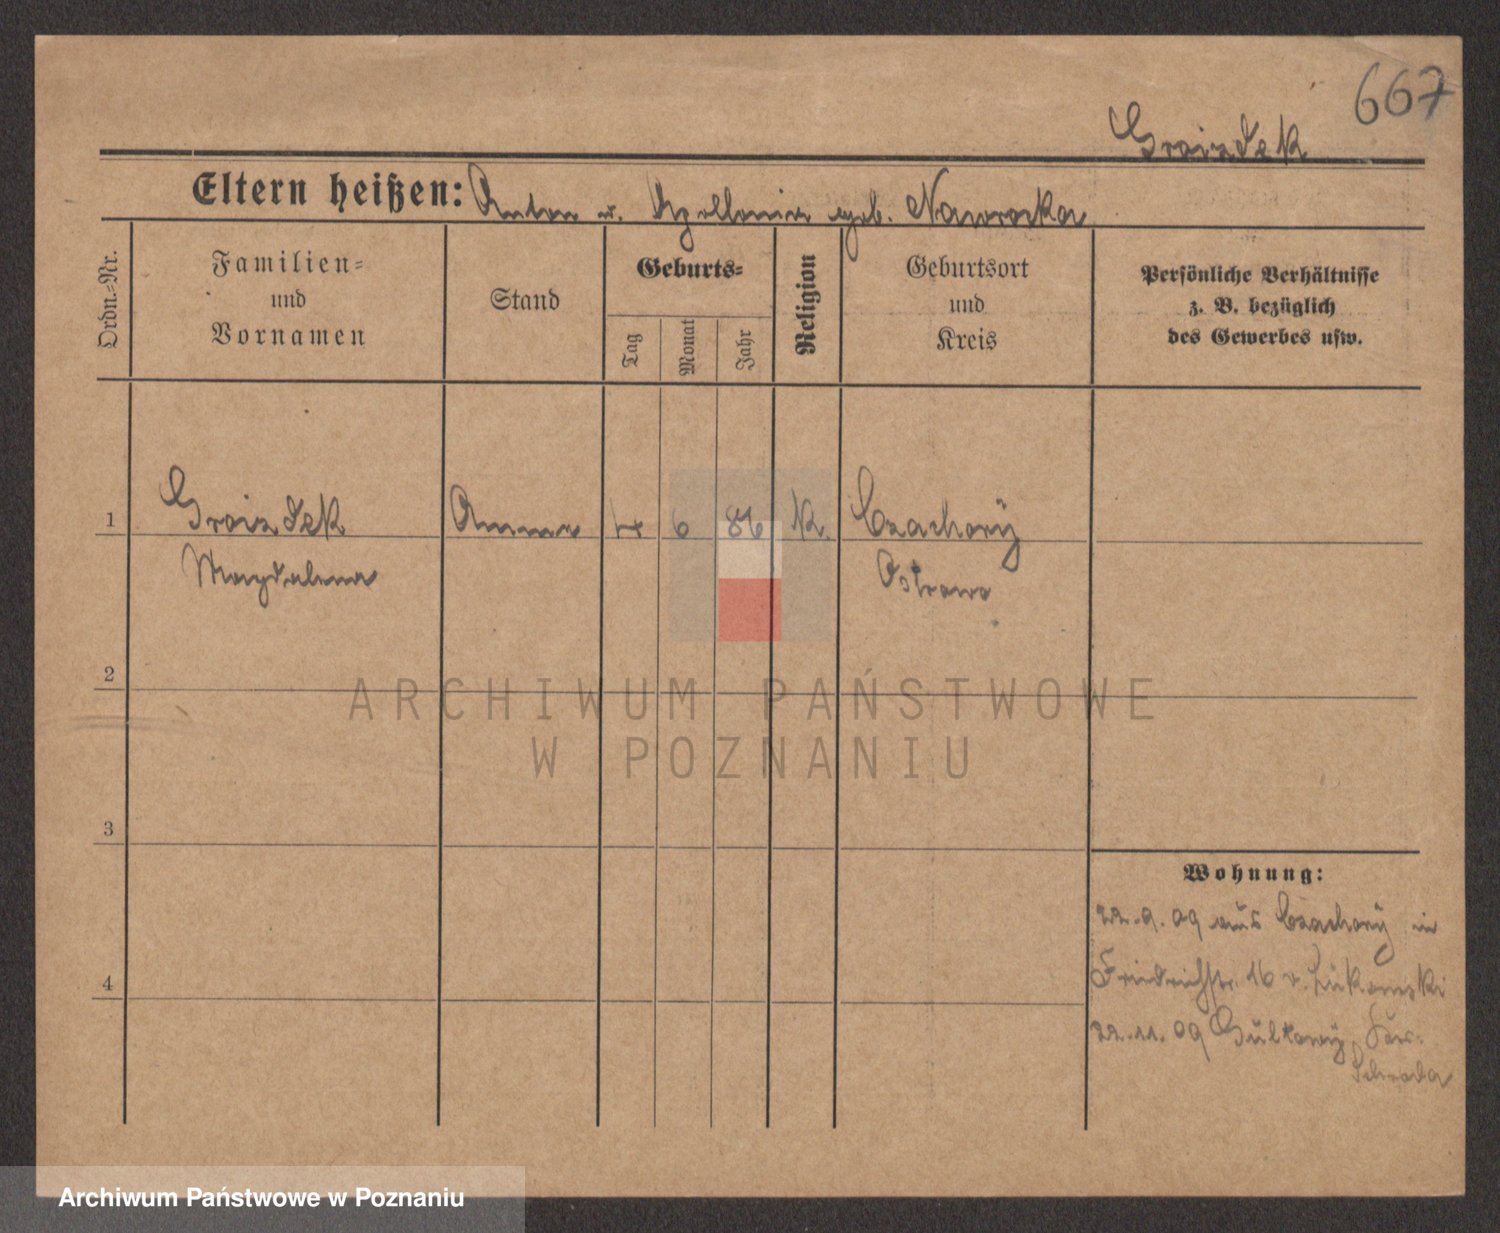 667
Groizdek
Eltern heißen: Anton u. Apollonia geb. Naworska
Ordn.-Nr.
Familien-
und
Vornamen
Stand
Geburts-
Tag
Monat
Jahr
Religion
Geburtsort
und
Kreis
Persönliche Verhältnisse
z. B. bezüglich
des Gewerbes usw.
1
Groizdek
Magdalena
Amme
6
86
K.
Czachory
Ostrowo
2
3
4
ARCHIWUM PAŃSTWOWE
W POZNANIU
Wohnung:
22.9.09 aus Czachory in
Friedrichstr. 16 v. Lukomski
22.11.09
Schroda
Archiwum Państwowe w Poznaniu